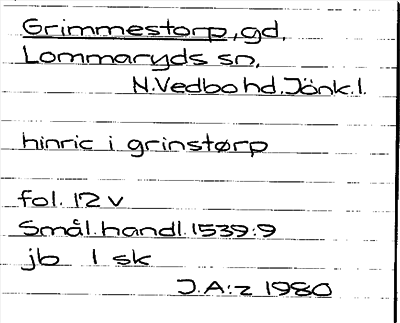 Grimmestorp, gd,
Lommaryds sn,
N. Vedbo hd. Jönk. l.
hinric i grinstørp
fol. 12 v
Smål. handl. 1539:9
jb 1 sk
J.A:z 1980